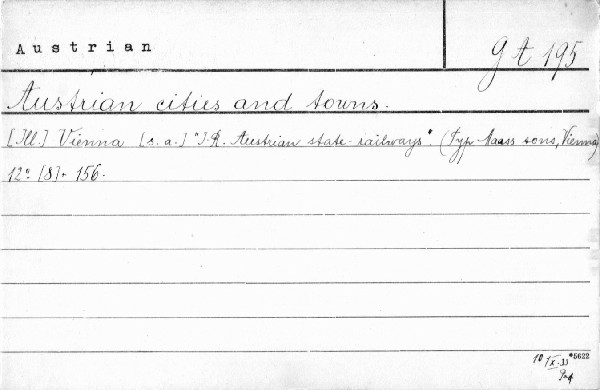 Austrian
g A 195
Austrian cities and towns.
[Ill.] Vienna [s.a.] "I.R. Austrian state railways". (Typ Haass sons, Vienna)
12° [8]+ 156.
10/IX.33 *5622